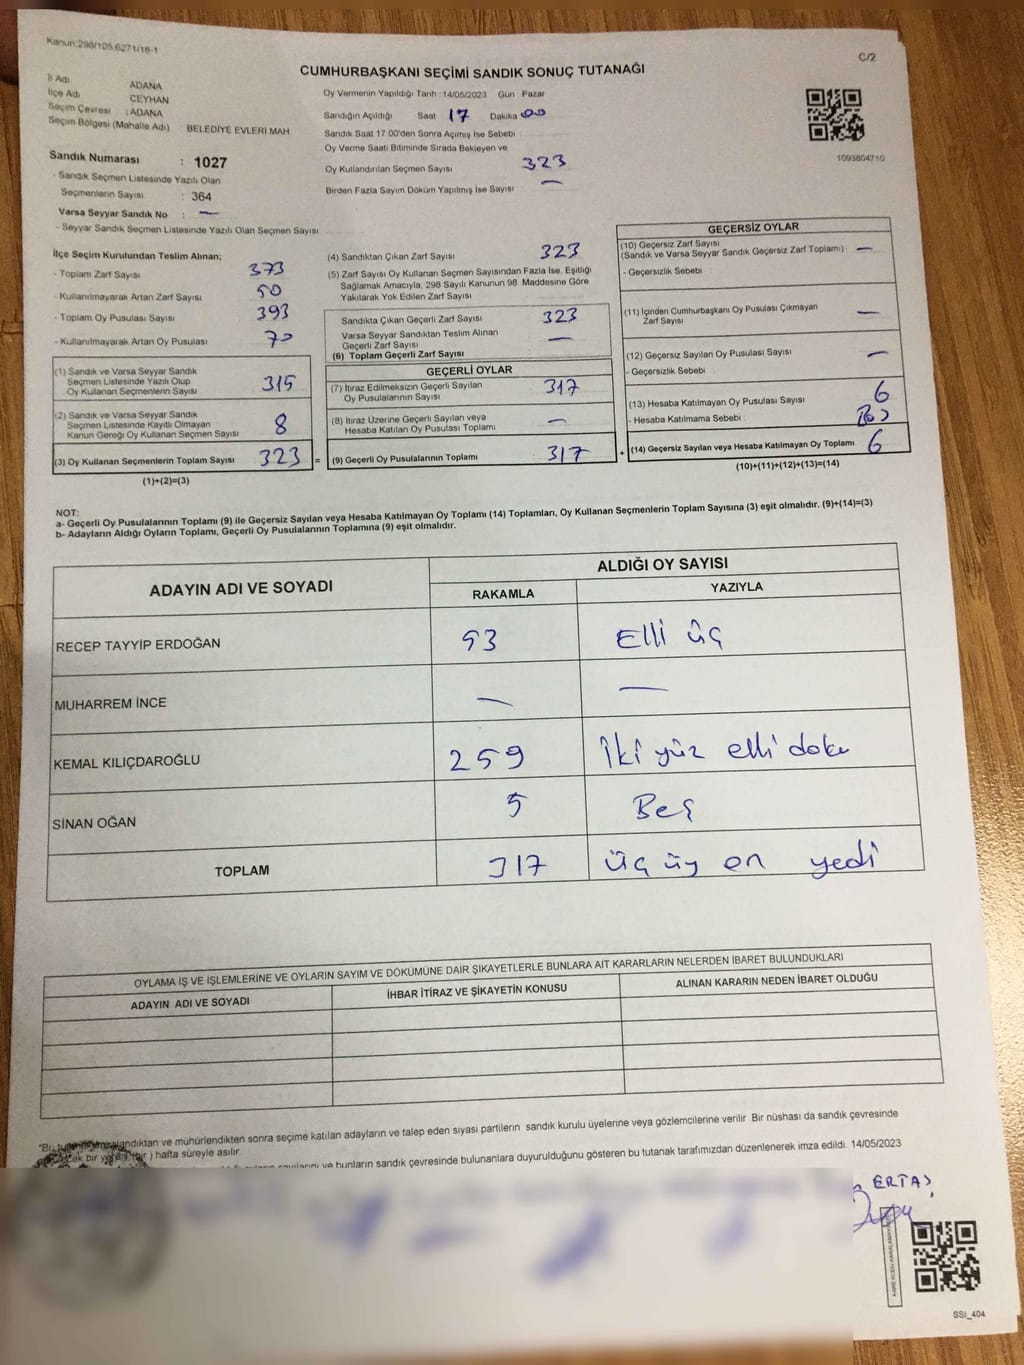 Kanun:298/105,6271/18-1
C/2
CUMHURBAŞKANI SEÇİMİ SANDIK SONUÇ TUTANAĞI
İl Adı ADANA
İlçe Adı CEYHAN
Seçim Çevresi : ADANA
Seçim Bölgesi (Mahalle Adı) BELEDİYE EVLERİ MAH
Sandık Numarası : 1027
- Sandık Seçmen Listesinde Yazılı Olan
Seçmenlerin Sayısı : 364
Varsa Seyyar Sandık No : —
- Seyyar Sandık Seçmen Listesinde Yazılı Olan Seçmen Sayısı
Oy Vermenin Yapıldığı Tarih :14/05/2023 Gün : Pazar
Sandığın Açıldığı Saat 17 Dakika 00
Sandık Saat 17.00'den Sonra Açımış İse Sebebi
Oy Verme Saati Bitiminde Sırada Bekleyen ve
Oy Kullandırılan Seçmen Sayısı 323
Birden Fazla Sayım Döküm Yapılmış İse Sayısı —
1093804710
İlçe Seçim Kurulundan Teslim Alınan;
- Toplam Zarf Sayısı 373
- Kullanılmayarak Artan Zarf Sayısı 50
- Toplam Oy Pusulası Sayısı 393
- Kullanılmayarak Artan Oy Pusulası 70
(1) Sandık ve Varsa Seyyar Sandık
Seçmen Listesinde Yazılı Olup
Oy Kullanan Seçmenlerin Sayısı 315
(2) Sandık ve Varsa Seyyar Sandık
Seçmen Listesinde Kayıtlı Olmayan
Kanun Gereği Oy Kullanan Seçmen Sayısı 8
(3) Oy Kullanan Seçmenlerin Toplam Sayısı 323 =
(1)+(2)=(3)
(4) Sandıktan Çıkan Zarf Sayısı 323
(5) Zarf Sayısı Oy Kullanan Seçmen Sayısından Fazla İse, Eşitliği
Sağlamak Amacıyla, 298 Sayılı Kanunun 98. Maddesine Göre
Yakılarak Yok Edilen Zarf Sayısı
Sandıkta Çıkan Geçerli Zarf Sayısı 323
Varsa Seyyar Sandıktan Teslim Alınan
Geçerli Zarf Sayısı —
(6) Toplam Geçerli Zarf Sayısı
GEÇERLİ OYLAR
(7) İtiraz Edilmeksizin Geçerli Sayılan
Oy Pusulalarının Sayısı 317
(8) İtiraz Üzerine Geçerli Sayılan veya
Hesaba Katılan Oy Pusulası Toplamı —
(9) Geçerli Oy Pusulalarının Toplamı 317 +
GEÇERSİZ OYLAR
(10) Geçersiz Zarf Sayısı
(Sandık ve Varsa Seyyar Sandık Geçersiz Zarf Toplamı) —
- Geçersizlik Sebebi
(11) İçinden Cumhurbaşkanı Oy Pusulası Çıkmayan
Zarf Sayısı —
(12) Geçersiz Sayılan Oy Pusulası Sayısı —
- Geçersizlik Sebebi
(13) Hesaba Katılmayan Oy Pusulası Sayısı 6
- Hesaba Katılmama Sebebi
(14) Geçersiz Sayılan veya Hesaba Katılmayan Oy Toplamı 6
(10)+(11)+(12)+(13)=(14)
NOT:
a- Geçerli Oy Pusulalarının Toplamı (9) ile Geçersiz Sayılan veya Hesaba Katılmayan Oy Toplamı (14) Toplamları, Oy Kullanan Seçmenlerin Toplam Sayısına (3) eşit olmalıdır. (9)+(14)=(3)
b- Adayların Aldığı Oyların Toplamı, Geçerli Oy Pusulalarının Toplamına (9) eşit olmalıdır.
ADAYIN ADI VE SOYADI ALDIĞI OY SAYISI
RAKAMLA YAZIYLA
RECEP TAYYİP ERDOĞAN 53 Elli üç
MUHARREM İNCE — —
KEMAL KILIÇDAROĞLU 259 İki yüz elli doku
SİNAN OĞAN 5 Beş
TOPLAM 317 üç üy on yedi
OYLAMA İŞ VE İŞLEMLERİNE VE OYLARIN SAYIM VE DÖKÜMÜNE DAİR ŞİKAYETLERLE BUNLARA AİT KARARLARIN NELERDEN İBARET BULUNDUKLARI
ADAYIN ADI VE SOYADI İHBAR İTİRAZ VE ŞİKAYETİN KONUSU ALINAN KARARIN NEDEN İBARET OLDUĞU
"Bu mühürlendikten sonra seçime katılan adayların ve talep eden siyasi partilerin sandık kurulu üyelerine veya gözlemcilerine verilir. Bir nüshası da sandık çevresinde
hafta süreyle asılır.
ve bunların sandık çevresinde bulunanlara duyurulduğunu gösteren bu tutanak tarafımızdan düzenlenerek imza edildi. 14/05/2023
ERTAŞ
SSI_404